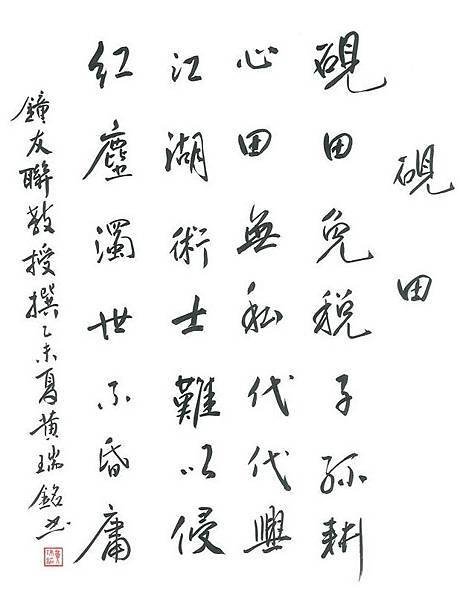 硯田
硯田免稅子孫耕
心田無私代代興
江湖術士難以侵
紅塵濁世不昏庸
鐘友聯教授撰乙未夏黃瑞銘書